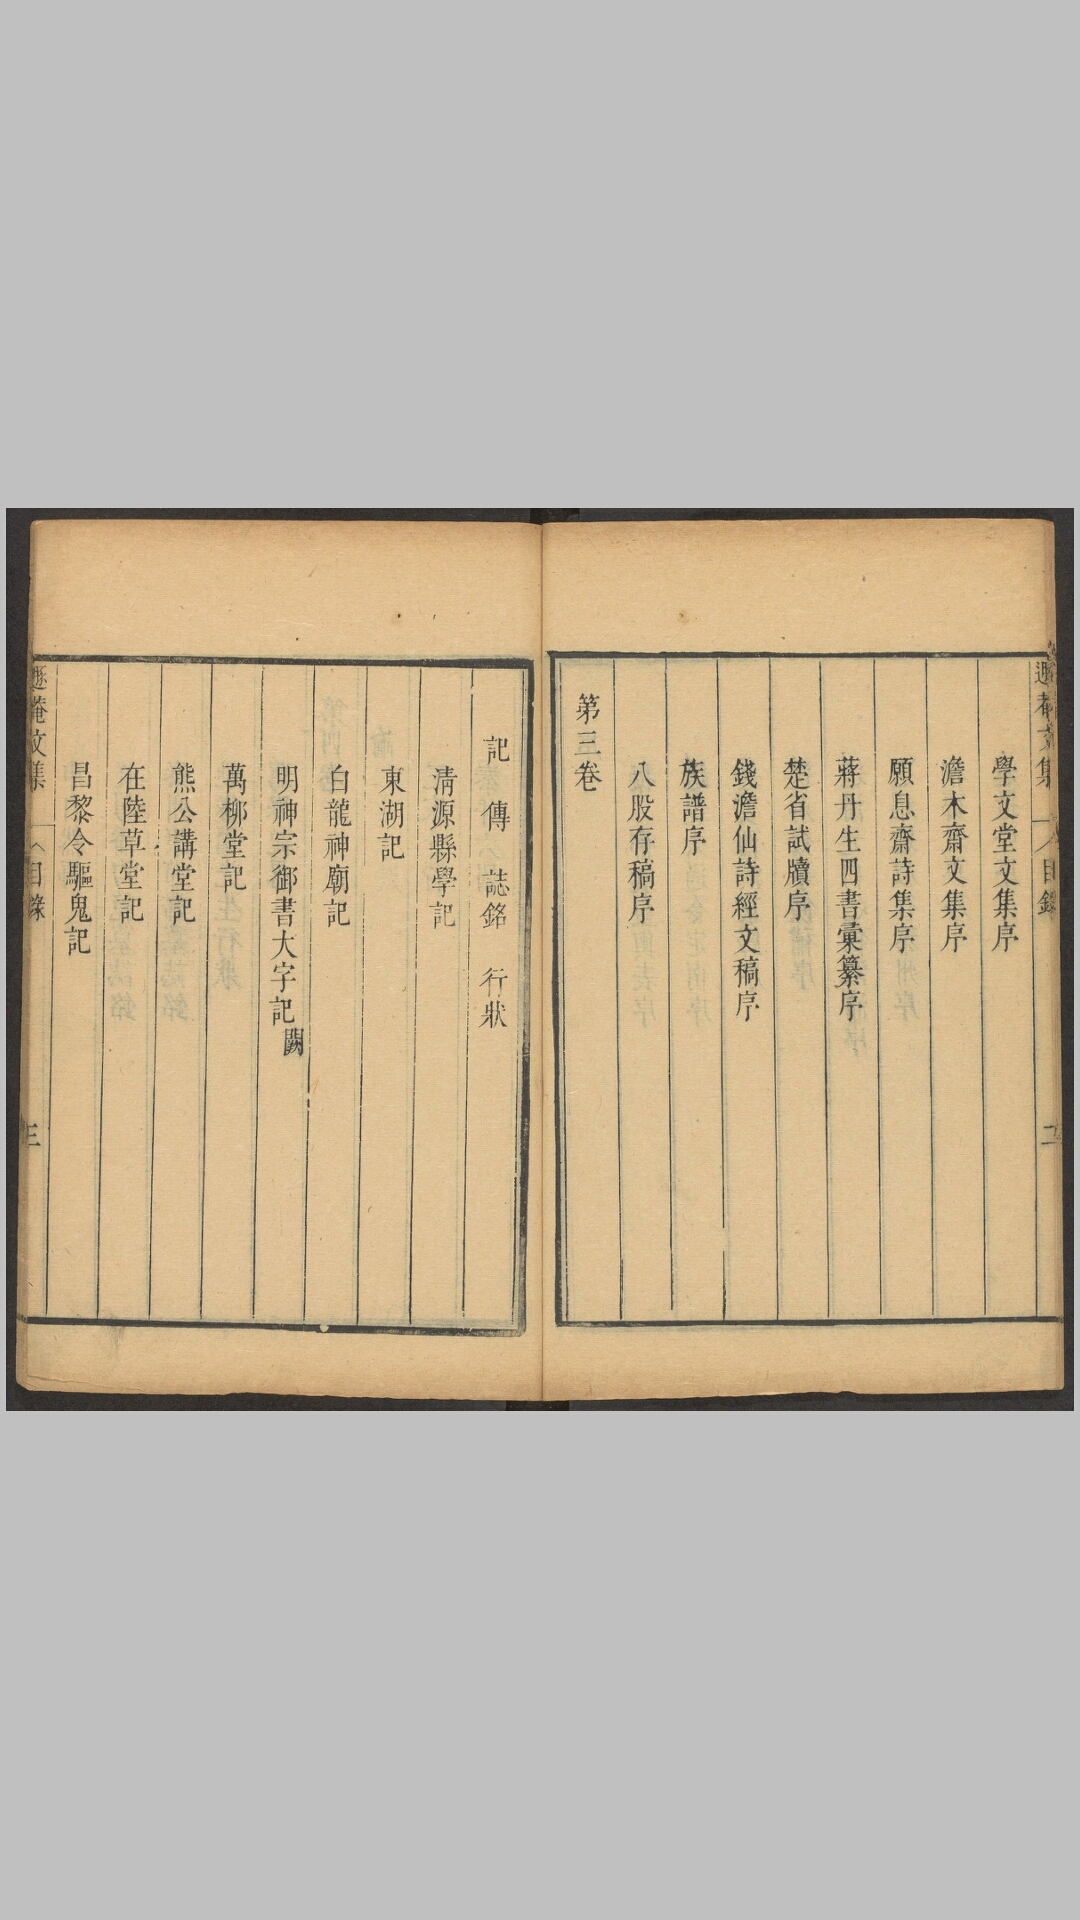 學文堂文集序
澹木齋文集序
願息齋詩集序
蔣丹生四書彙纂序
楚省試牘序
錢澹仙詩經文稿序
族譜序
八股存稿序
第三卷
記 傳 誌銘 行狀
清源縣學記
東湖記
白龍神廟記
明神宗御書大字記闕
萬柳堂記
熊公講堂記
在陸草堂記
昌黎令驅鬼記
遯菴文集 目錄 三